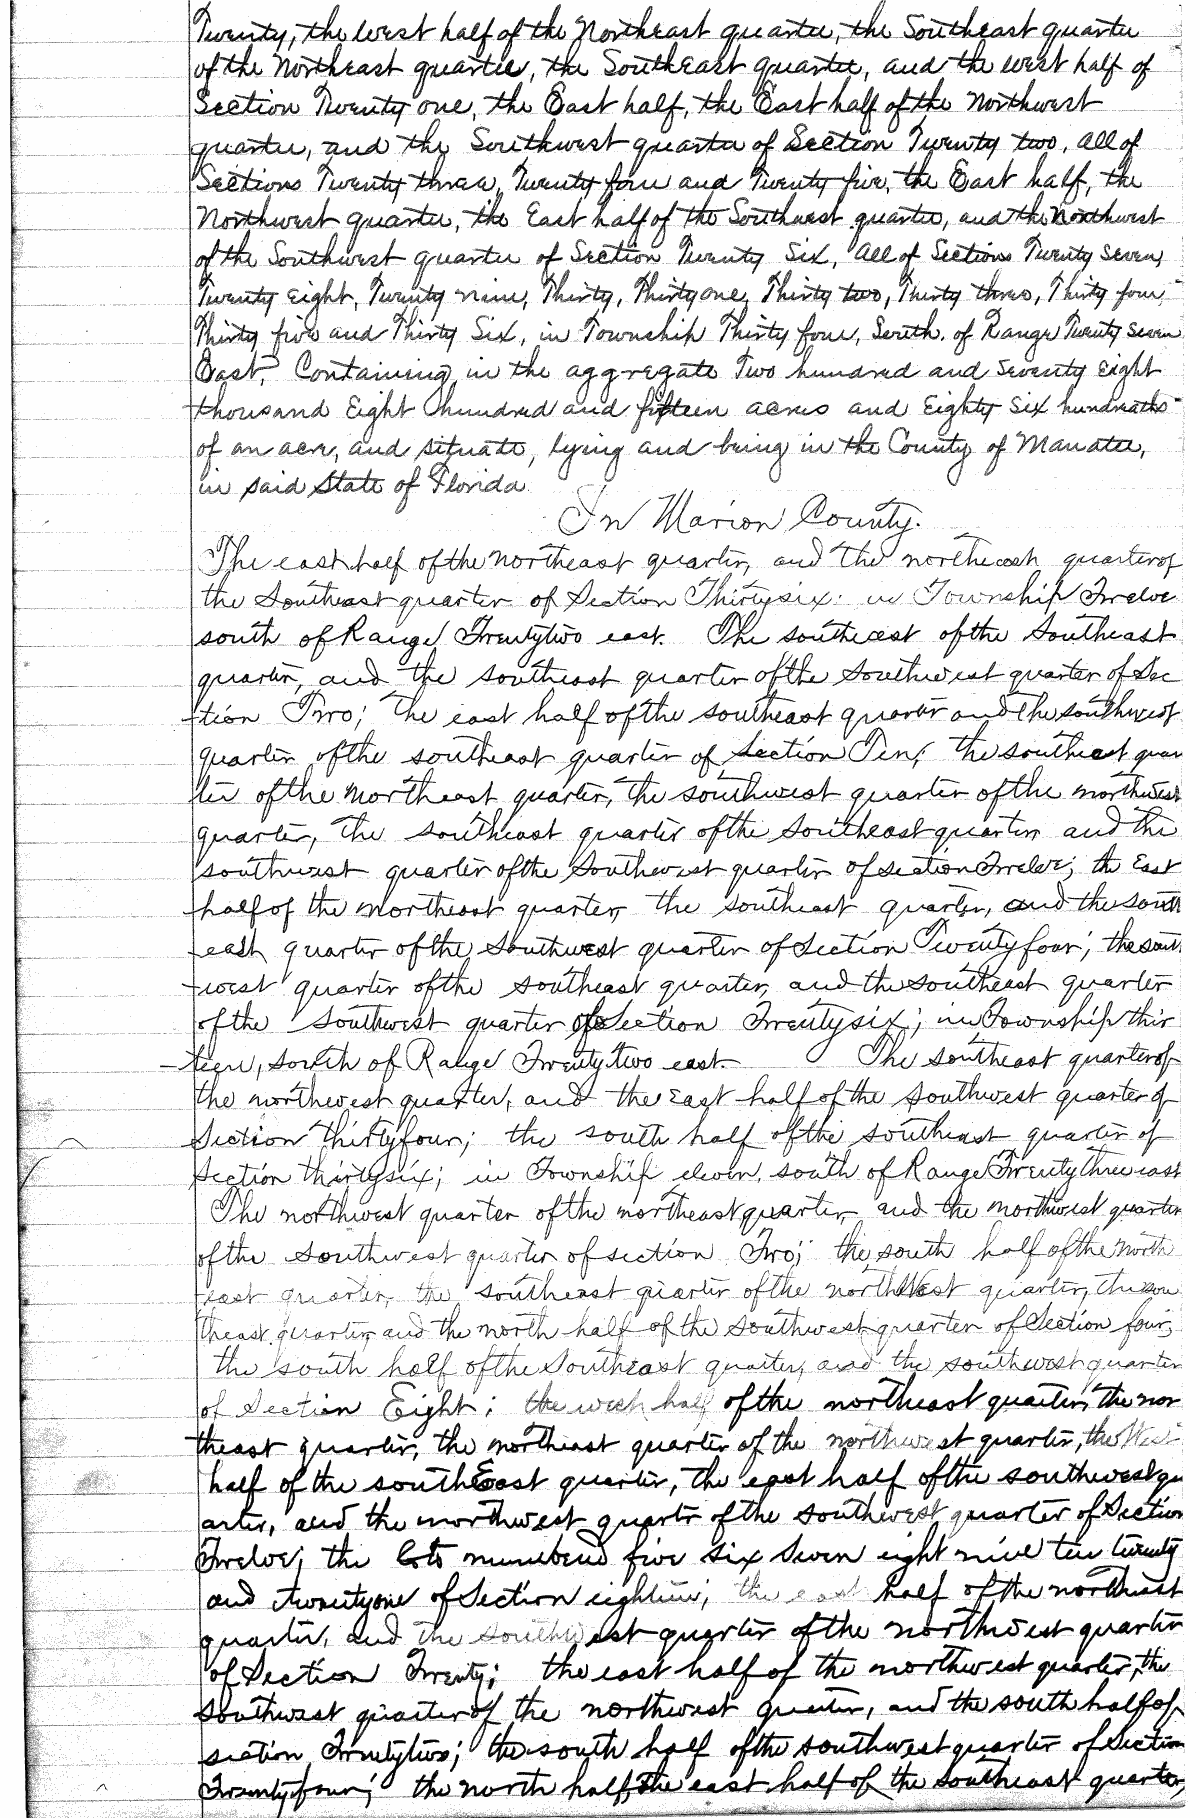 Twenty, the West half of the Northeast quarter, the Southeast quarter
of the Northeast quarter, the Southeast quarter, and the west half of
Section Twenty one, the East half, the East half of the Northwest
quarter, and the Southwest quarter of Section Twenty two, all of
Sections Twenty three, Twenty four and Twenty five, the East half, the
Northwest quarter, the East half of the Southwest quarter, and the Northwest
of the Southwest quarter of Section Twenty Six, all of Sections Twenty Seven,
Twenty Eight, Twenty nine, Thirty, Thirty one, Thirty two, Thirty three, Thirty four,
Thirty five and Thirty Six, in Township Thirty four, South. of Range Twenty Seven
East, Containing in the aggregate Two hundred and Seventy Eight
thousand Eight hundred and fifteen acres and Eighty Six hundredths
of an acre, and situate, lying and being in the County of Manatee,
in said State of Florida
In Marion County.
The east half of the northeast quarter, and the northeast quarter of
the Southeast quarter of Section Thirtysix: in Township Twelve
south of Range Twentytwo east. The southeast of the Southeast
quarter, and the southeast quarter of the Southwest quarter of Sec
tion Two; the east half of the southeast quarter and the southwest
quarter of the southeast quarter of Section Ten; the southeast quar
ter of the northeast quarter, the southwest quarter of the northwest
quarter, the southeast quarter of the Southeast quarter, and the
southwest quarter of the Southwest quarter of section Twelve; the East
half of the northeast quarter, the southeast quarter, and the south
east quarter of the Southwest quarter of Section Twentyfour; the south
west quarter of the southeast quarter, and the southeast quarter
of the Southwest quarter of Section Twentysix; in Township thir
teen, south of Range Twentytwo east. The southeast quarter of
the northwest quarter, and the East half of the Southwest quarter of
Section Thirtyfour; the south half of the southeast quarter of
Section thirtysix; in Township eleven, south of Range Twentythree east
The northwest quarter of the northeast quarter, and the northwest quarter
of the Southwest quarter of section Two; the south half of the north
east quarter, the southeast quarter of the northWest quarter, the sou
theast quarter, and the north half of the Southwest quarter of Section four;
the south half of the Southeast quarter, and the southwest quarter
of Section Eight; the west half of the northeast quarter, the nor
theast quarter, the northeast quarter of the northwest quarter, the West
half of the southEast quarter, the east half of the southwest qu
arter, and the northwest quartr of the southwest quarter of Section
Twelve; the lots numbered five six seven eight nine ten twenty
and twentyone of Section eighteen; the east half of the northeast
quarter, and the southwest quarter of the northwest quarter
of Section Twenty; the east half of the northwest quarter, the
southwest quarter of the northwest quarter, and the south half of
section Twentytwo; the south half of the southwest quarter of Section
Twentyfour; the north half the east half of the southeast quarter,